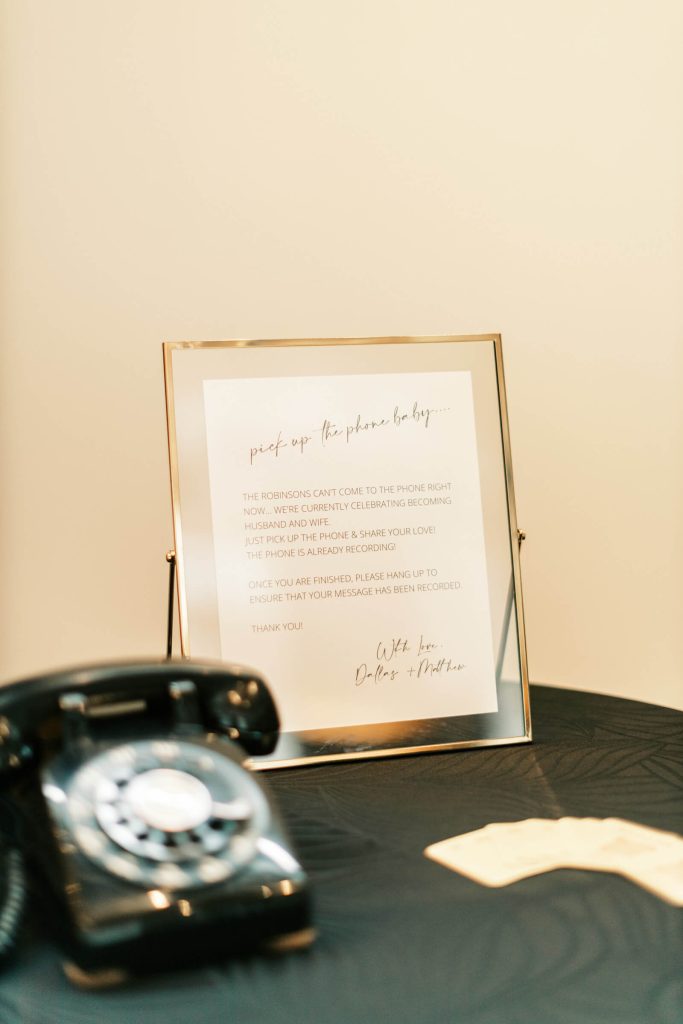 pick up the phone baby....
THE ROBINSONS CAN'T COME TO THE PHONE RIGHT
NOW... WE'RE CURRENTLY CELEBRATING BECOMING
HUSBAND AND WIFE.
JUST PICK UP THE PHONE & SHARE YOUR LOVE!
THE PHONE IS ALREADY RECORDING!
ONCE YOU ARE FINISHED, PLEASE HANG UP TO
ENSURE THAT YOUR MESSAGE HAS BEEN RECORDED.
THANK YOU!
With Love,
Dallas + Matthew